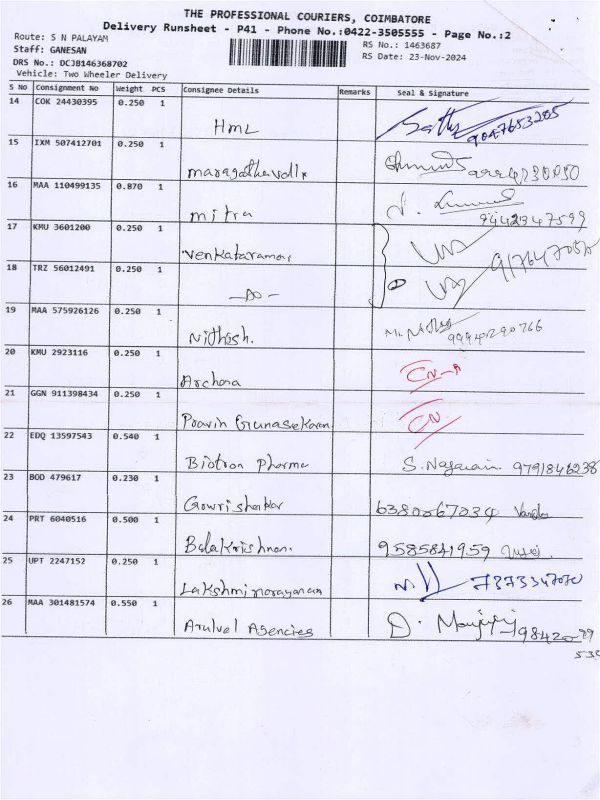 THE PROFESSIONAL COURIERS, COIMBATORE
Delivery Runsheet - P41 - Phone No.:0422-3505555 - Page No.:2
Route: S N PALAYAM
RS No.: 1463687
Staff: GANESAN
RS Date: 23-Nov-2024
DRS No.: DCJB146368702
Vehicle: Two Wheeler Delivery
S No Consignment No Weight PCS Consignee Details Remarks Seal & Signature
14 COK 24430395 0.250 1
HML 9047653205
15 IXM 507412701 0.250 1
maragathavalli
16 MAA 110499135 0.870 1
mitra 9442347599
17 KMU 3601200 0.250 1
Venkataraman
18 TRZ 56012491 0.250 1
-Do-
19 MAA 575926126 0.250 1
Nithish. 9994290766
20 KMU 2923116 0.250 1
Archana CN-A
21 GGN 911398434 0.250 1
Pravin Gunasekaran CN
22 EDQ 13597543 0.540 1
Biotron Pharma S. Nagarain 9791846238
23 BOD 479617 0.230 1
Gowrishankar 6380067034
24 PRT 6040516 0.500 1
Balakrishnan. 9585841959
25 UPT 2247152 0.250 1
Lakshminarayanan 7373347070
26 MAA 301481574 0.550 1
Arulvel Agencies D.